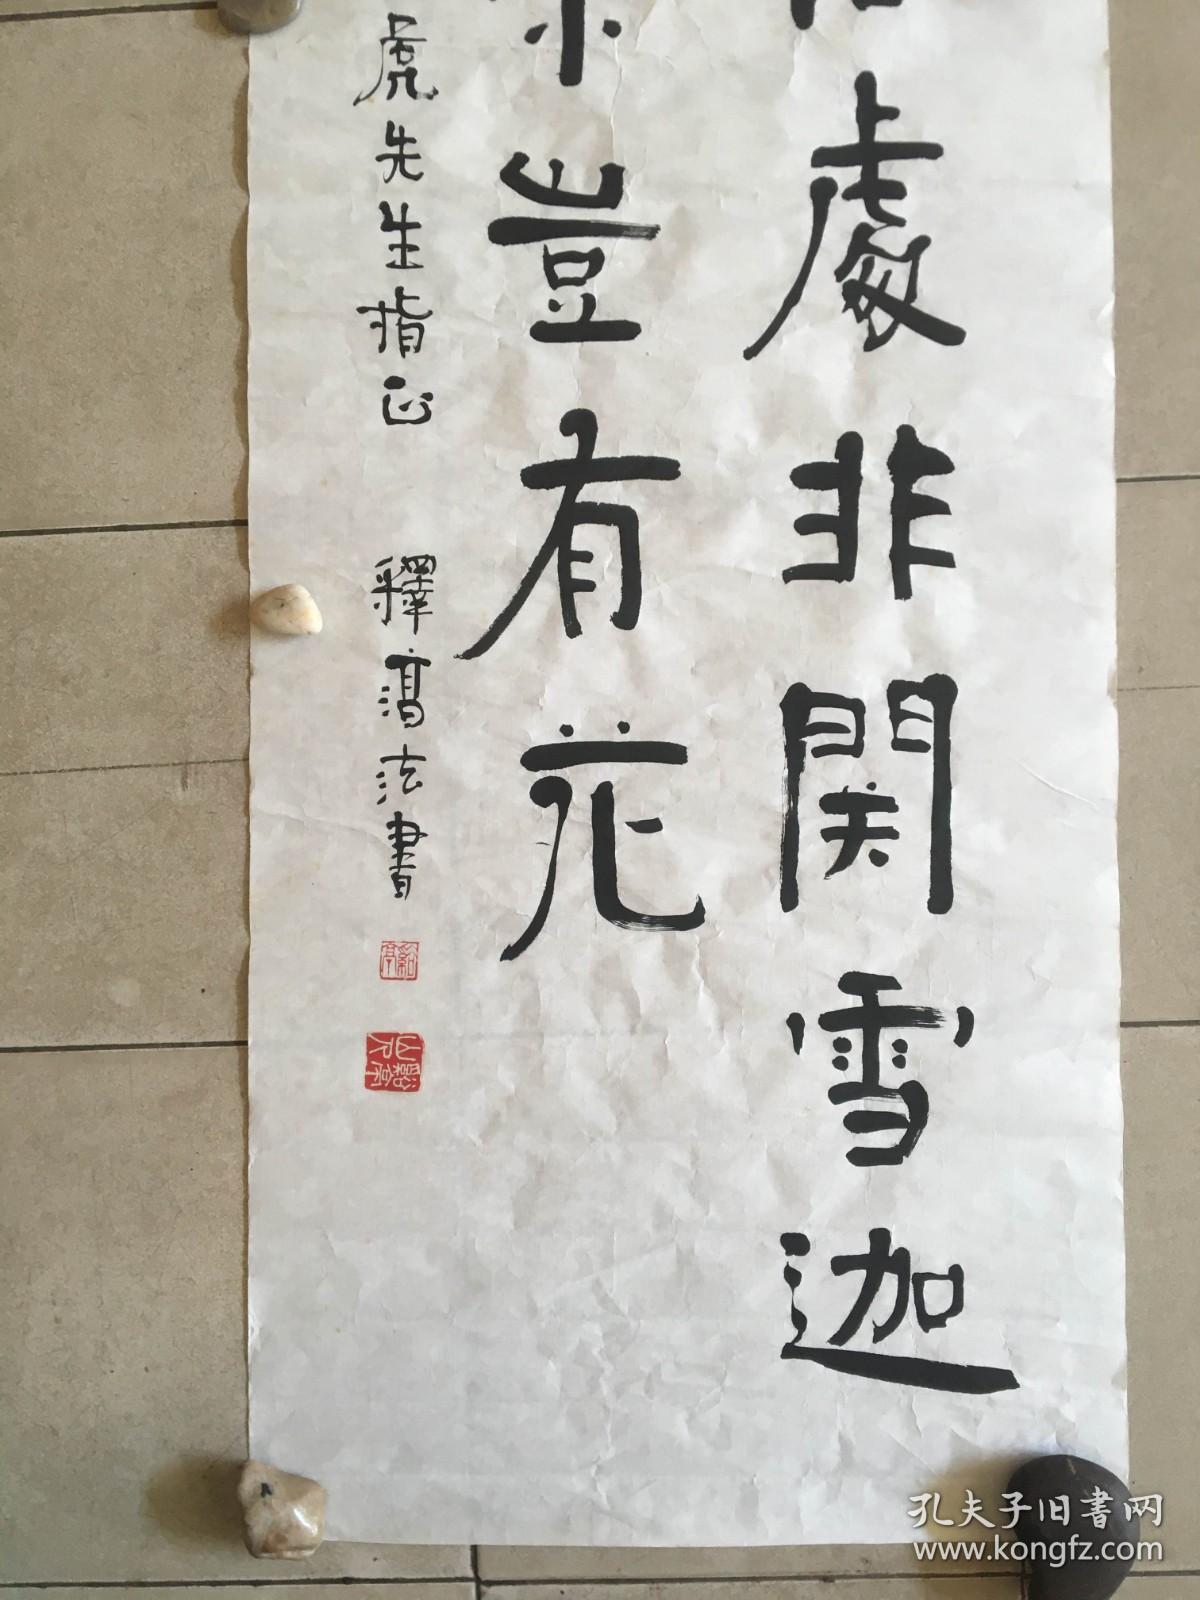 處非関雪迦
豈有花
虎先生指正
釋濶法書
孔夫子旧书网
www.kongfz.com